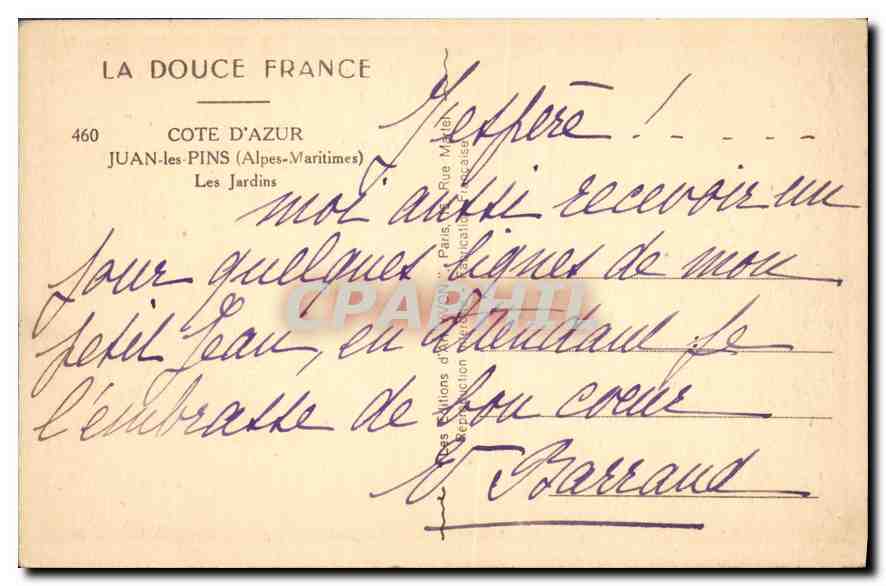 LA DOUCE FRANCE
460 COTE D'AZUR
JUAN-les-PINS (Alpes-Maritimes)
Les Jardins
J'espère ! - - - -
moi aussi recevoir un
jour quelques lignes de mon
petit Jean, en attendant je
l'embrasse de bon coeur
V Barraud
Les Editions d'Art "YVON", Paris, Rue Martel
Reproduction Interdite Fabrication Française
CPAPHIL